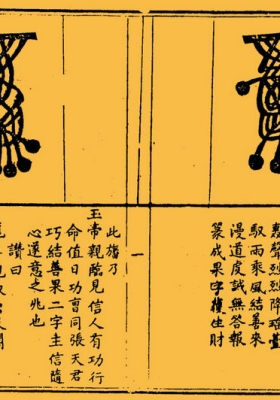 聲烈烈降瑤臺
馭雨乘風結善來
漫道虔誠無答報
篆成果字獲生財
一
此旛乃
玉帝親臨見信人有功行
命值日功曹同張天君
巧結善果二字主信隨
心遂意之兆也
讚曰